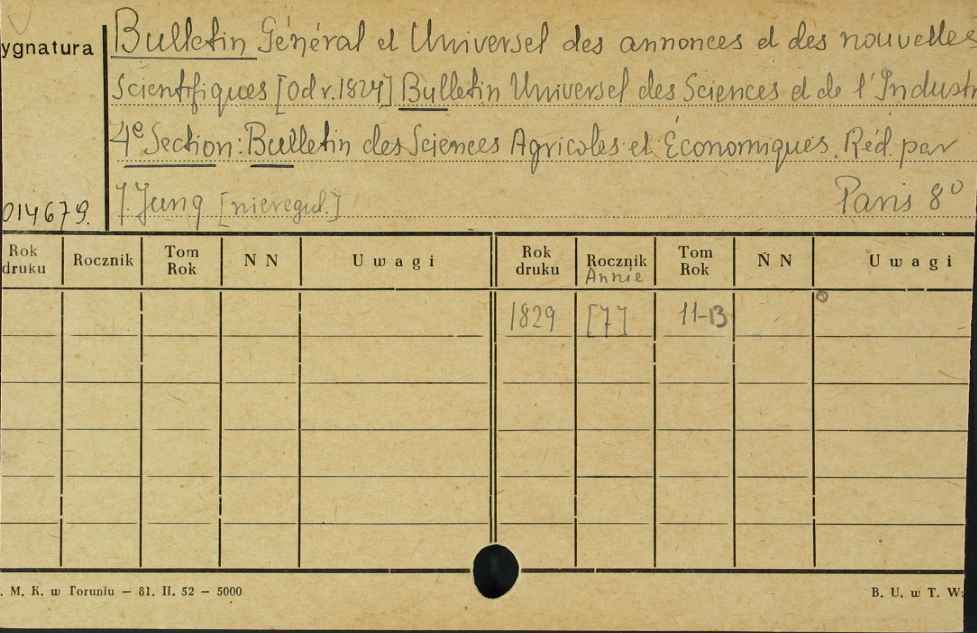 ygnatura
Bulletin Général et Universel des annonces et des nouvelles
Scientifiques [od r. 1824] Bulletin Universel des Sciences et de l'Industr
4e Section: Bulletin des Sciences Agricoles et Économiques. Réd. par
014679. J. Jung [nieregul.] Paris 8°
Rok druku Rocznik Tom Rok N N Uwagi Rok druku Rocznik Annie Tom Rok N N Uwagi
1829 [7] 11-13
. M. K. w Toruniu — 81. II. 52 — 5000 B. U. w T. W